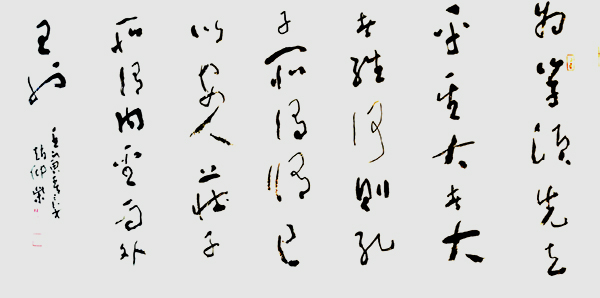 為學須先立
乎其大者大
者維何則孔
子所謂脩己
以安人莊子
所謂內聖而外
王